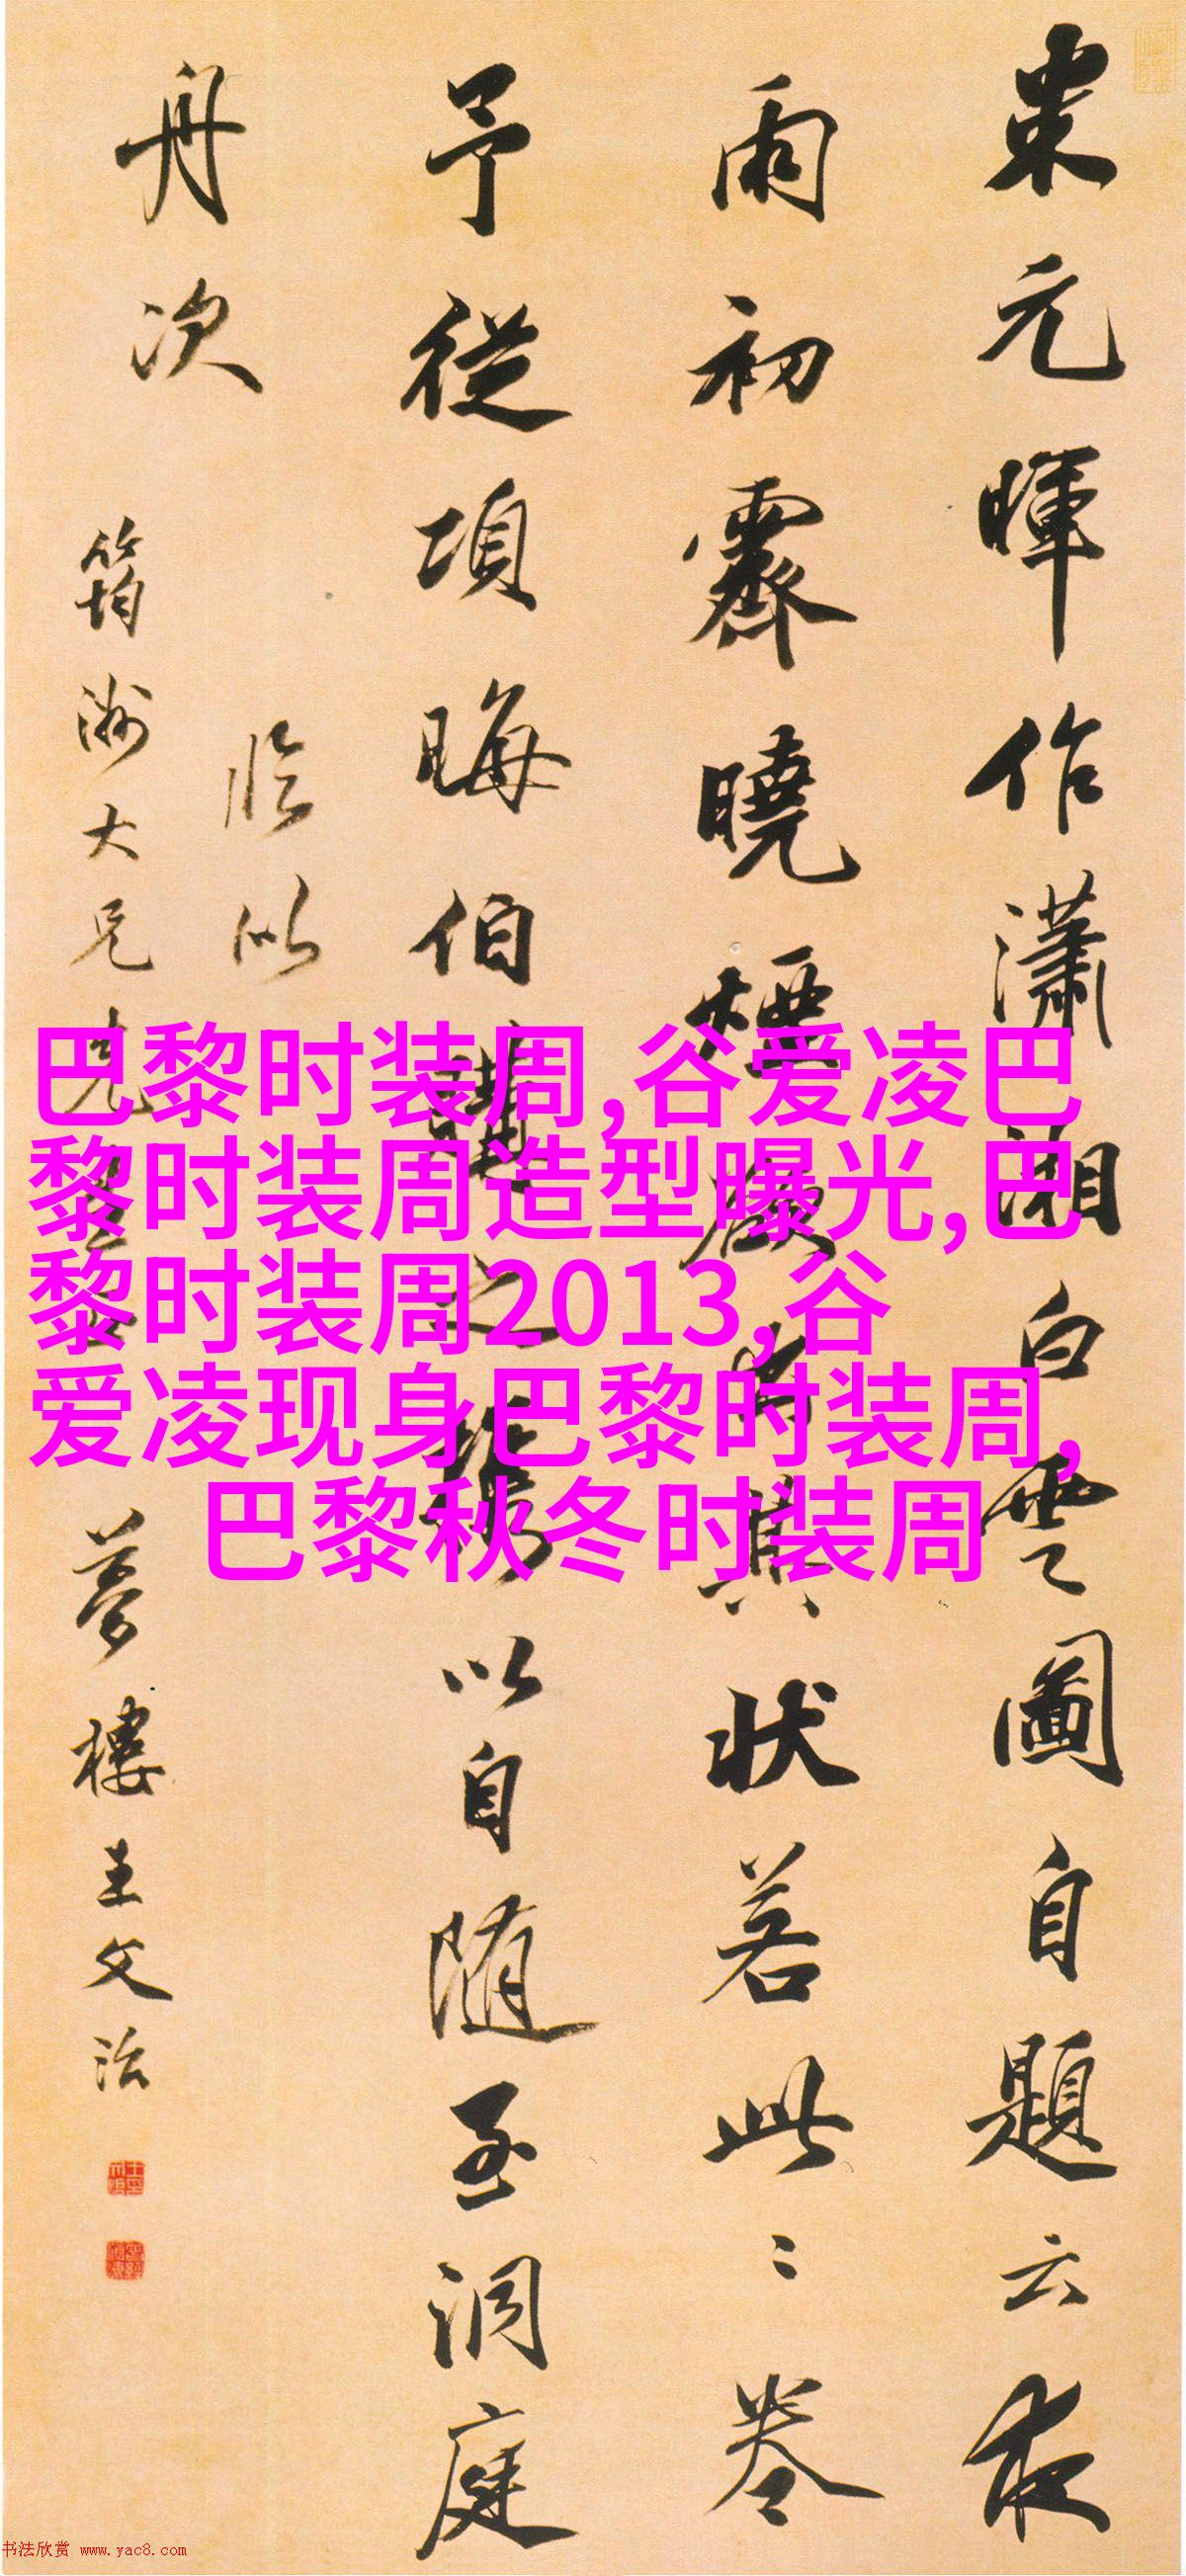 米元暉作瀟湘白雲圖自題云夜
雨初霽曉煙
狀若此〻卷
予從項晦伯購之
以自随至洞庭
舟次
臨以
筠洲大兄
夢樓王文治
巴黎时装周,谷爱凌巴
黎时装周造型曝光,巴
黎时装周2013,谷
爱凌现身巴黎时装周,
巴黎秋冬时装周
书法欣赏 www.yac8.com